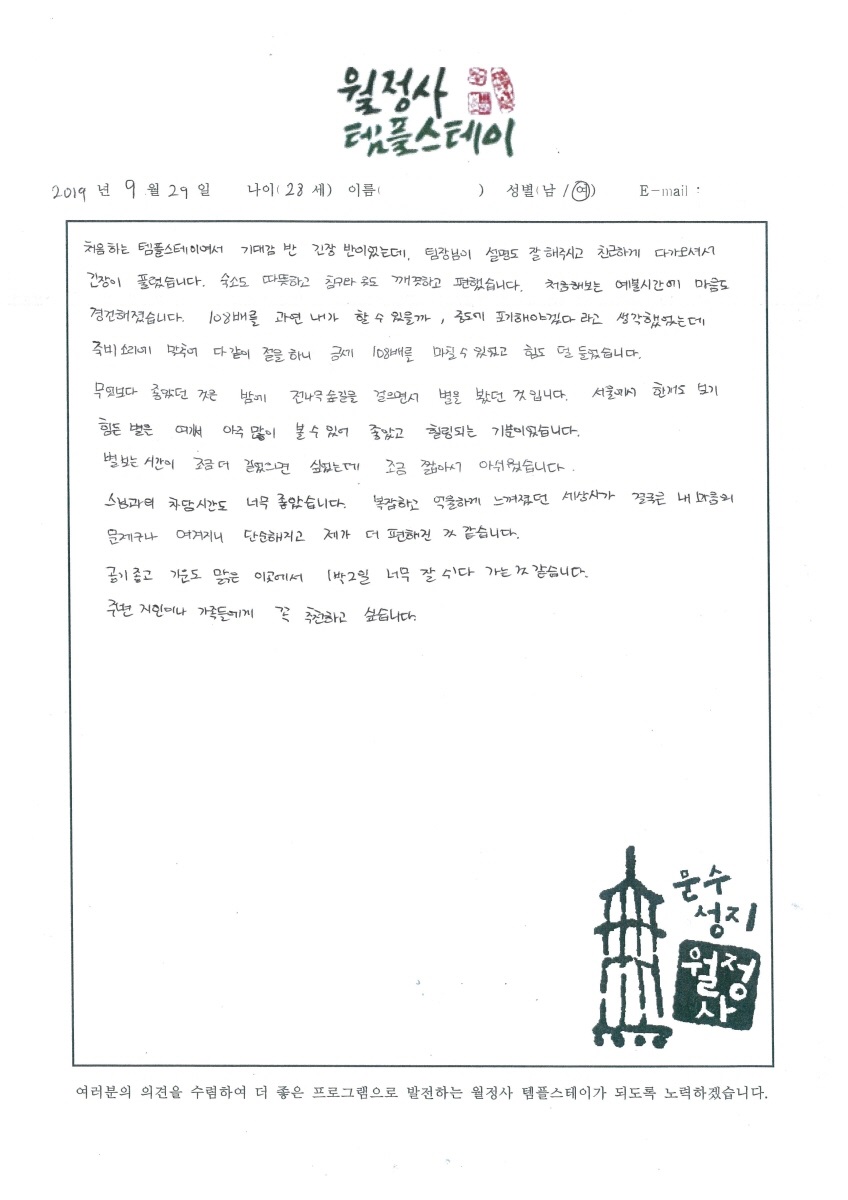 월정사
템플스테이
2019 년 9 월 29 일 나이( 28 세) 이름( ) 성별(남 / 여) E-mail :
처음하는 템플스테이여서 기대감 반 긴장 반이었는데, 팀장님이 설명도 잘 해주시고 친근하게 다가오셔서
긴장이 풀렸습니다. 숙소도 따뜻하고 침구라 옷도 깨끗하고 편했습니다. 처음해보는 예불시간에 마음도
경건해졌습니다. 108배를 과연 내가 할 수 있을까, 중도에 포기해야겠다 라고 생각했었는데
죽비 소리에 맞추어 다 같이 절을 하니 금세 108배를 마칠 수 있었고 힘도 덜 들었습니다.
무엇보다 좋았던 것은 밤에 전나무 숲길을 걸으면서 별을 봤던 것 입니다. 서울에서 한개도 보기
힘든 별은 여기서 아주 많이 볼 수 있어 좋았고 힐링되는 기분이었습니다.
별 보는 시간이 조금 더 길었으면 싶었는데 조금 짧아서 아쉬웠습니다.
스님과의 차담시간도 너무 좋았습니다. 복잡하고 억울하게 느껴졌던 세상사가 결국은 내 마음의
문제구나 여겨지니 단순해지고 제가 더 편해진 것 같습니다.
공기 좋고 기운도 맑은 이곳에서 1박2일 너무 잘 쉬다 가는 것 같습니다.
주변 지인이나 가족들에게 꼭 추천하고 싶습니다.
문수
성지
월정
사
여러분의 의견을 수렴하여 더 좋은 프로그램으로 발전하는 월정사 템플스테이가 되도록 노력하겠습니다.